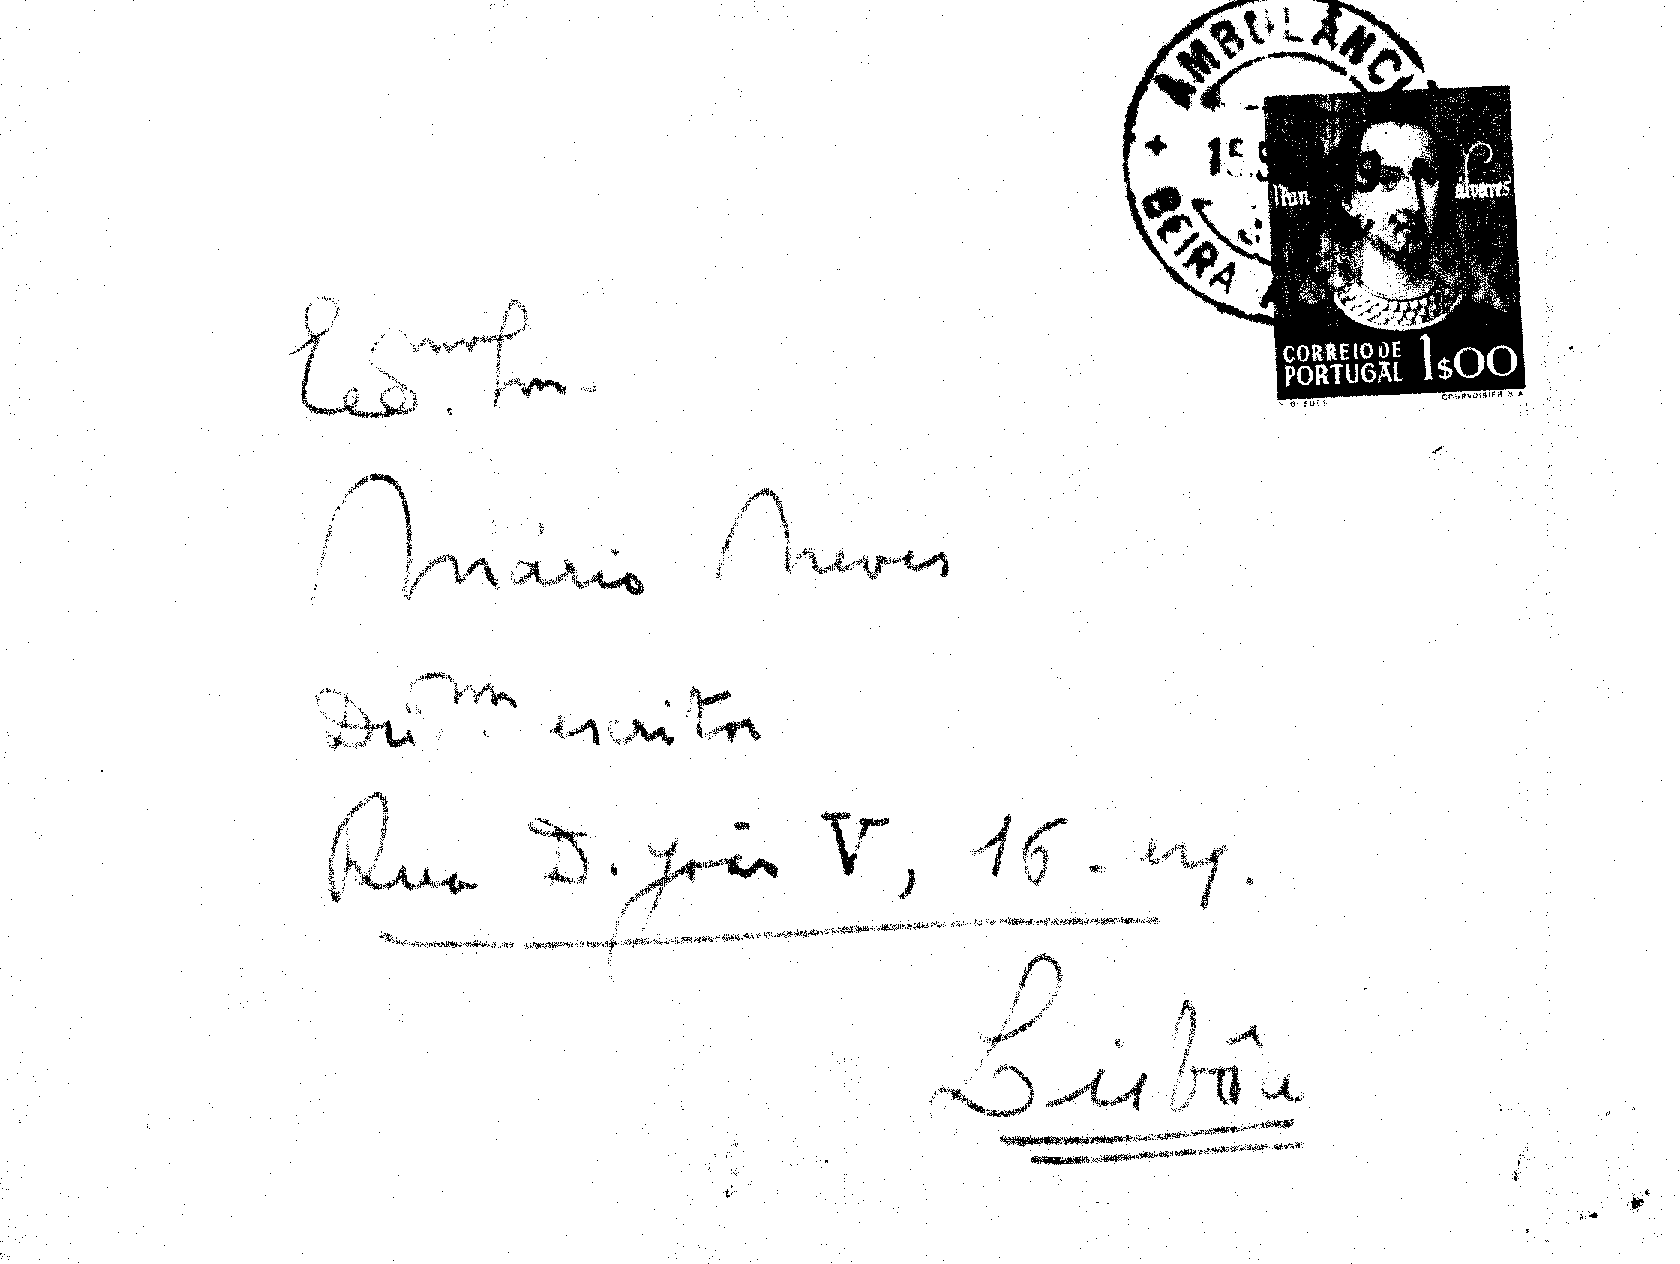 AMBULANC
15.S 9
BEIRA A
Nun Alvares
CORREIO DE
PORTUGAL 1$00
COURVOISIER S.A
Exmo. Snr.
Mário Neves
Digmo. escritor
Rua D. João V, 16 - esq.
Lisbôa